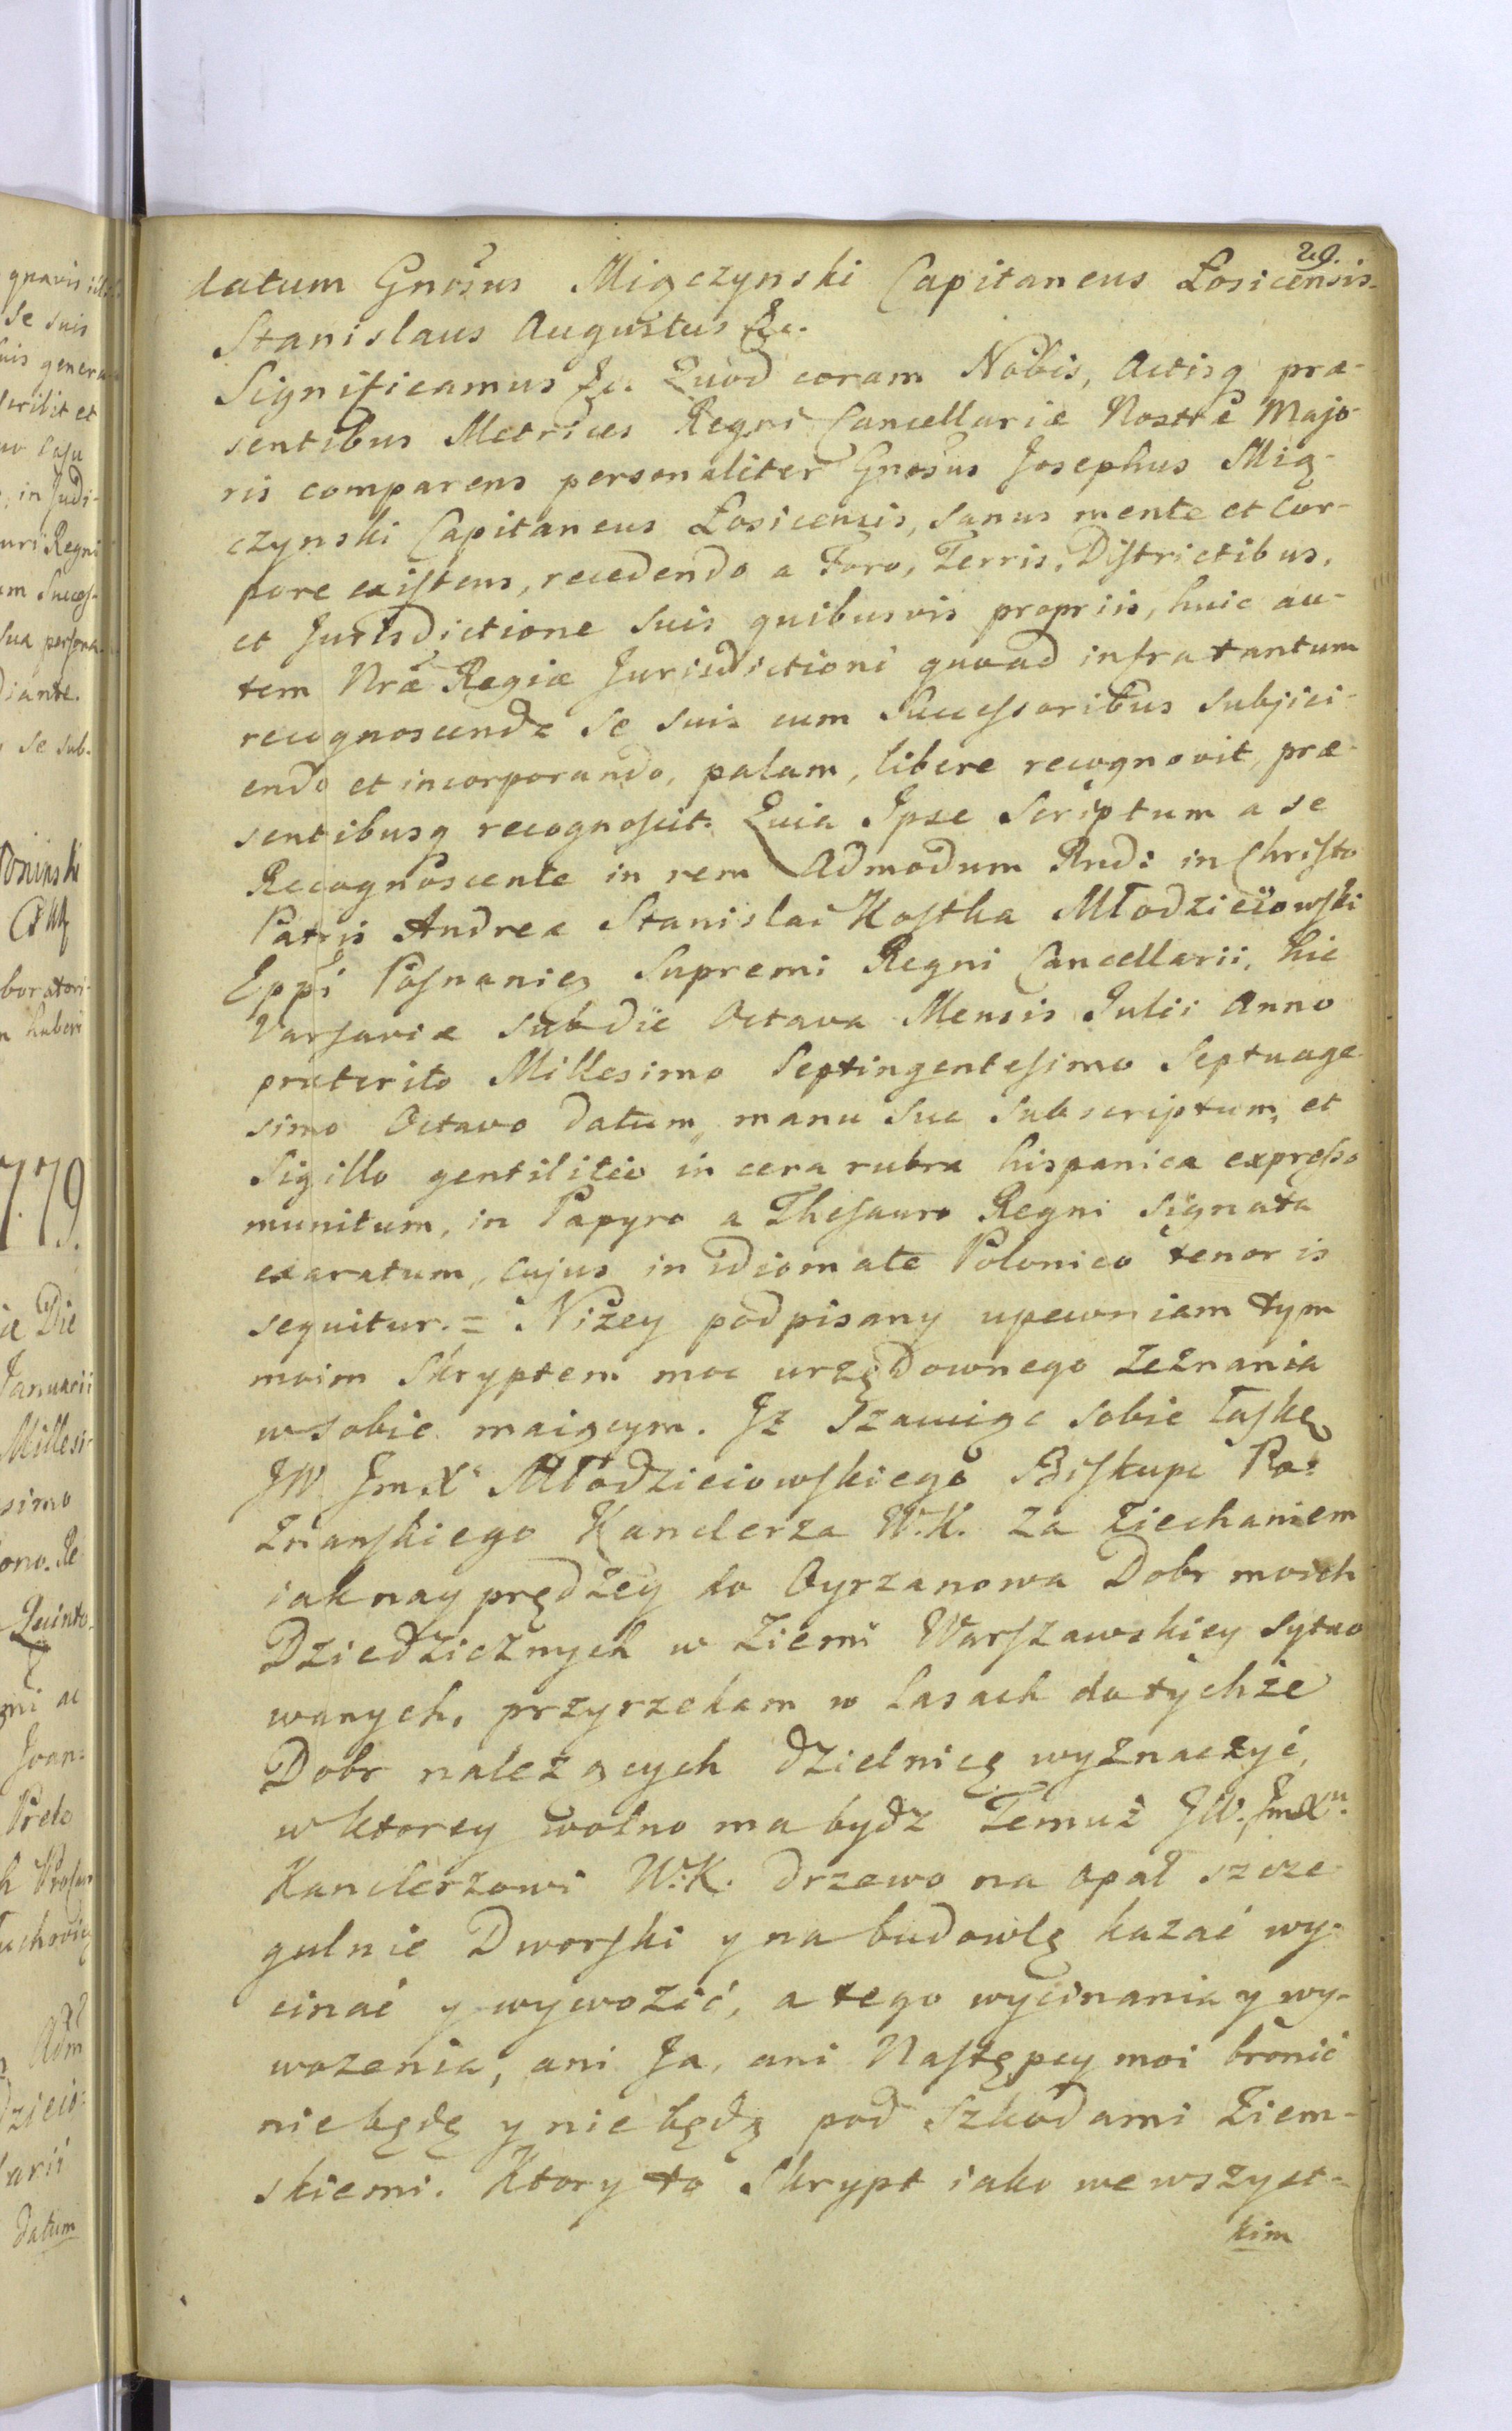 29.
datum Gnosus Miączynski Capitaneus Łosicensis.
Stanislaus Augustus &c.
Significamus &c. Quod coram Nobis, Actisq præ-
sentibus Metrices Regni Cancellariæ Nostrê Majo-
ris comparens personaliter Gnosus Josephus Mią-
czynski Capitaneus Łosicensis, sanus mente et Cor-
pore existens, recedendo a Foro, Terris, Districtibus,
et Jurisdictione suis quibusvis propriis, huic au-
tem Nræ Regiæ Jurisdictioni quoad infra tantum
recognoscenda se suis cum Successoribus subjici-
endo et incorporando, palam, libere recognovit, præ-
sentibusq recognoscit. Quia Ipse Scriptum a se
Recognoscente in rem Admodum Rndi in Christo
Patris Andreæ Stanislai Kostka Młodzieiowski
Eppi Posnanien Supremi Regni Cancellarii, hic
Varsaviæ sub die Octava Mensis Julii Anno
præterito Millesimo Septingentesimo Septuage
simo Octavo datum, manu sua subscriptum, et
Sigillo gentilitio in cera rubra hispanica expresso
munitum, in Papyro a Thesauro Regni signata
exaratum, cujus in idiomate Polonico tenor is
sequitur. = Niżey podpisany upewniam tym
moim Skryptem moc urzędownego zeznania
w sobie maiącym. Iż szacuiąc sobie łaskę
JW JmXa Młodzieiowskiego Biskupa Po-
znanskiego Kanclerza W.K. za ziechaniem
iak nayprędzey do Oyrzanowa Dobr moich
Dziedzicznych w Ziemi Warszawskiey sytuo
wanych, przyrzekam w Lasach do tychże
Dobr należących dzielnicę wyznaczyć,
w ktorey wolno ma bydz Temuż JW. JmXu.
Kanclerzowi W.K. drzewo na opał szcze
gulnie Dworski y na budowlę kazać wy-
cinać y wywozić, a tego wycinania y wy-
wozenia, ani Ja, ani Następcy moi bronić
nie będę y nie będą pod Szkodami Ziem-
skiemi. Ktory to Skrypt iako we wszyst-
kim